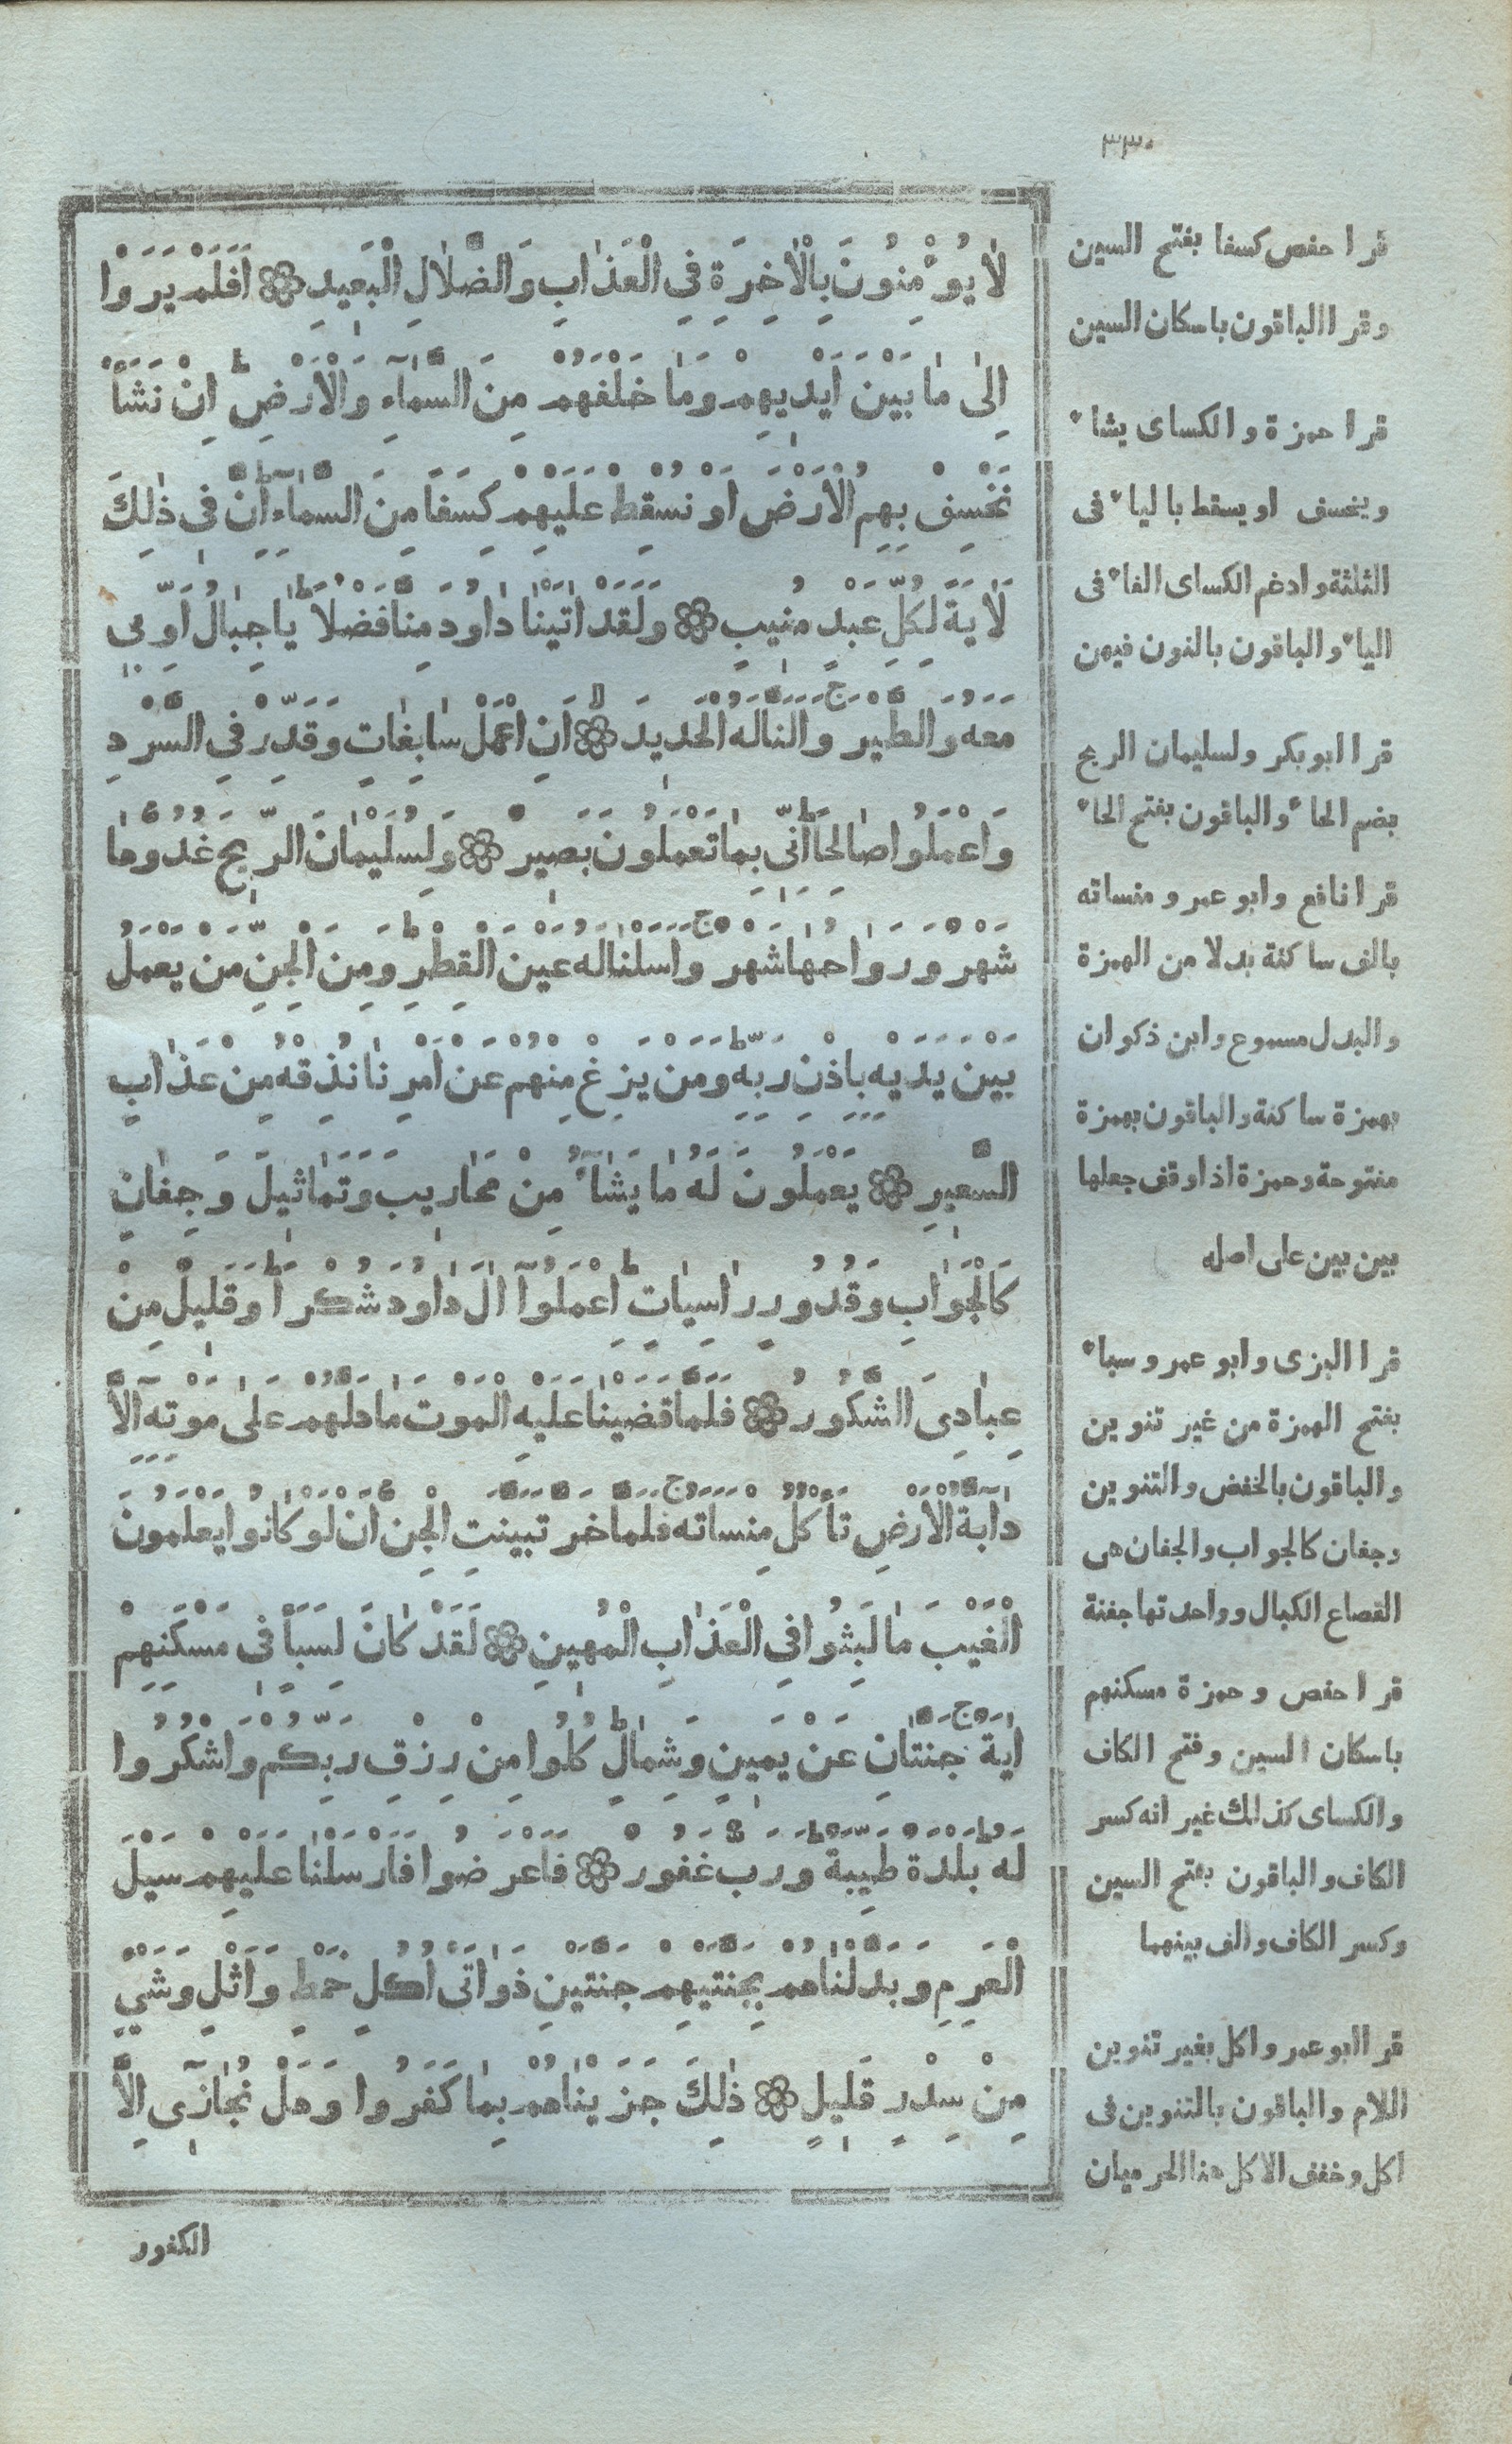 ٣٣٠
لَا يُؤْمِنُونَ بِالْاٰخِرَةِ فِى الْعَذَابِ وَالضَّلَالِ الْبَعِيدِ ۞ اَفَلَمْ يَرَوْا
اِلٰى مَا بَيْنَ اَيْدِيهِمْ وَمَا خَلْفَهُمْ مِنَ السَّمَآءِ وَالْاَرْضِ ط اِنْ نَشَأْ
نَخْسِفْ بِهِمُ الْاَرْضَ اَوْ نُسْقِطْ عَلَيْهِمْ كِسَفًا مِنَ السَّمَآءِ ط اِنَّ فِى ذٰلِكَ
لَاٰيَةً لِكُلِّ عَبْدٍ مُنِيبٍ ۞ وَلَقَدْ اٰتَيْنَا دَاوُدَ مِنَّا فَضْلًا ط يَا جِبَالُ اَوِّبِى
مَعَهُ وَالطَّيْرَ ج وَاَلَنَّا لَهُ الْحَدِيدَ لا ۞ اَنِ اعْمَلْ سَابِغَاتٍ وَقَدِّرْ فِى السَّرْدِ
وَاعْمَلُوا صَالِحًا ط اِنِّى بِمَا تَعْمَلُونَ بَصِيرٌ ۞ وَلِسُلَيْمَانَ الرِّيحَ غُدُوُّهَا
شَهْرٌ وَرَوَاحُهَا شَهْرٌ ج وَاَسَلْنَا لَهُ عَيْنَ الْقِطْرِ ط وَمِنَ الْجِنِّ مَنْ يَعْمَلُ
بَيْنَ يَدَيْهِ بِاِذْنِ رَبِّهِ ط وَمَنْ يَزِغْ مِنْهُمْ عَنْ اَمْرِنَا نُذِقْهُ مِنْ عَذَابِ
السَّعِيرِ ۞ يَعْمَلُونَ لَهُ مَا يَشَآءُ مِنْ مَحَارِيبَ وَتَمَاثِيلَ وَجِفَانٍ
كَالْجَوَابِ وَقُدُورٍ رَاسِيَاتٍ ط اِعْمَلُوآ اٰلَ دَاوُدَ شُكْرًا ط وَقَلِيلٌ مِنْ
عِبَادِىَ الشَّكُورُ ۞ فَلَمَّا قَضَيْنَا عَلَيْهِ الْمَوْتَ مَا دَلَّهُمْ عَلٰى مَوْتِهِ اِلَّا
دَآبَّةُ الْاَرْضِ تَأْكُلُ مِنْسَاَتَهُ ج فَلَمَّا خَرَّ تَبَيَّنَتِ الْجِنُّ اَنْ لَوْ كَانُوا يَعْلَمُونَ
الْغَيْبَ مَا لَبِثُوا فِى الْعَذَابِ الْمُهِينِ ۞ لَقَدْ كَانَ لِسَبَأٍ فِى مَسْكَنِهِمْ
اٰيَةٌ ج جَنَّتَانِ عَنْ يَمِينٍ وَشِمَالٍ ط كُلُوا مِنْ رِزْقِ رَبِّكُمْ وَاشْكُرُوا
لَهُ ط بَلْدَةٌ طَيِّبَةٌ وَرَبٌّ غَفُورٌ ۞ فَاَعْرَضُوا فَاَرْسَلْنَا عَلَيْهِمْ سَيْلَ
الْعَرِمِ وَبَدَّلْنَاهُمْ بِجَنَّتَيْهِمْ جَنَّتَيْنِ ذَوَاتَى اُكُلٍ خَمْطٍ وَاَثْلٍ وَشَىْءٍ
مِنْ سِدْرٍ قَلِيلٍ ۞ ذٰلِكَ جَزَيْنَاهُمْ بِمَا كَفَرُوا وَهَلْ نُجَازِى اِلَّا
الكفور
قرا حفص كسفا بفتح السين
وقرا الباقون باسكان السين
قرا حمزة والكساى يشاء
ويخسف او يسقط بالياء فى
الثلثة وادغم الكساى الفاء فى
الياء والباقون بالنون فيهن
قرا ابو بكر ولسليمان الريح
بضم الحاء والباقون بفتح الحاء
قرا نافع وابو عمرو منساته
بالف ساكنة بدلا من الهمزة
والبدل مسموع وابن ذكوان
بهمزة ساكنة والباقون بهمزة
مفتوحة وحمزة اذا وقف جعلها
بين بين على اصله
قرا البزى وابو عمرو سباء
بفتح الهمزة من غير تنوين
والباقون بالخفض والتنوين
وجفان كالجواب والجفان هى
القصاع الكبال وواحدتها جفنة
قرا حفص وحمزة مسكنهم
باسكان السين وفتح الكاف
والكساى كذلك غير انه كسر
الكاف والباقون بفتح السين
وكسر الكاف والف بينهما
قرا ابو عمرو اكل بغير تنوين
اللام والباقون بالتنوين فى
اكل وخفف الاكل هنا الحرميان